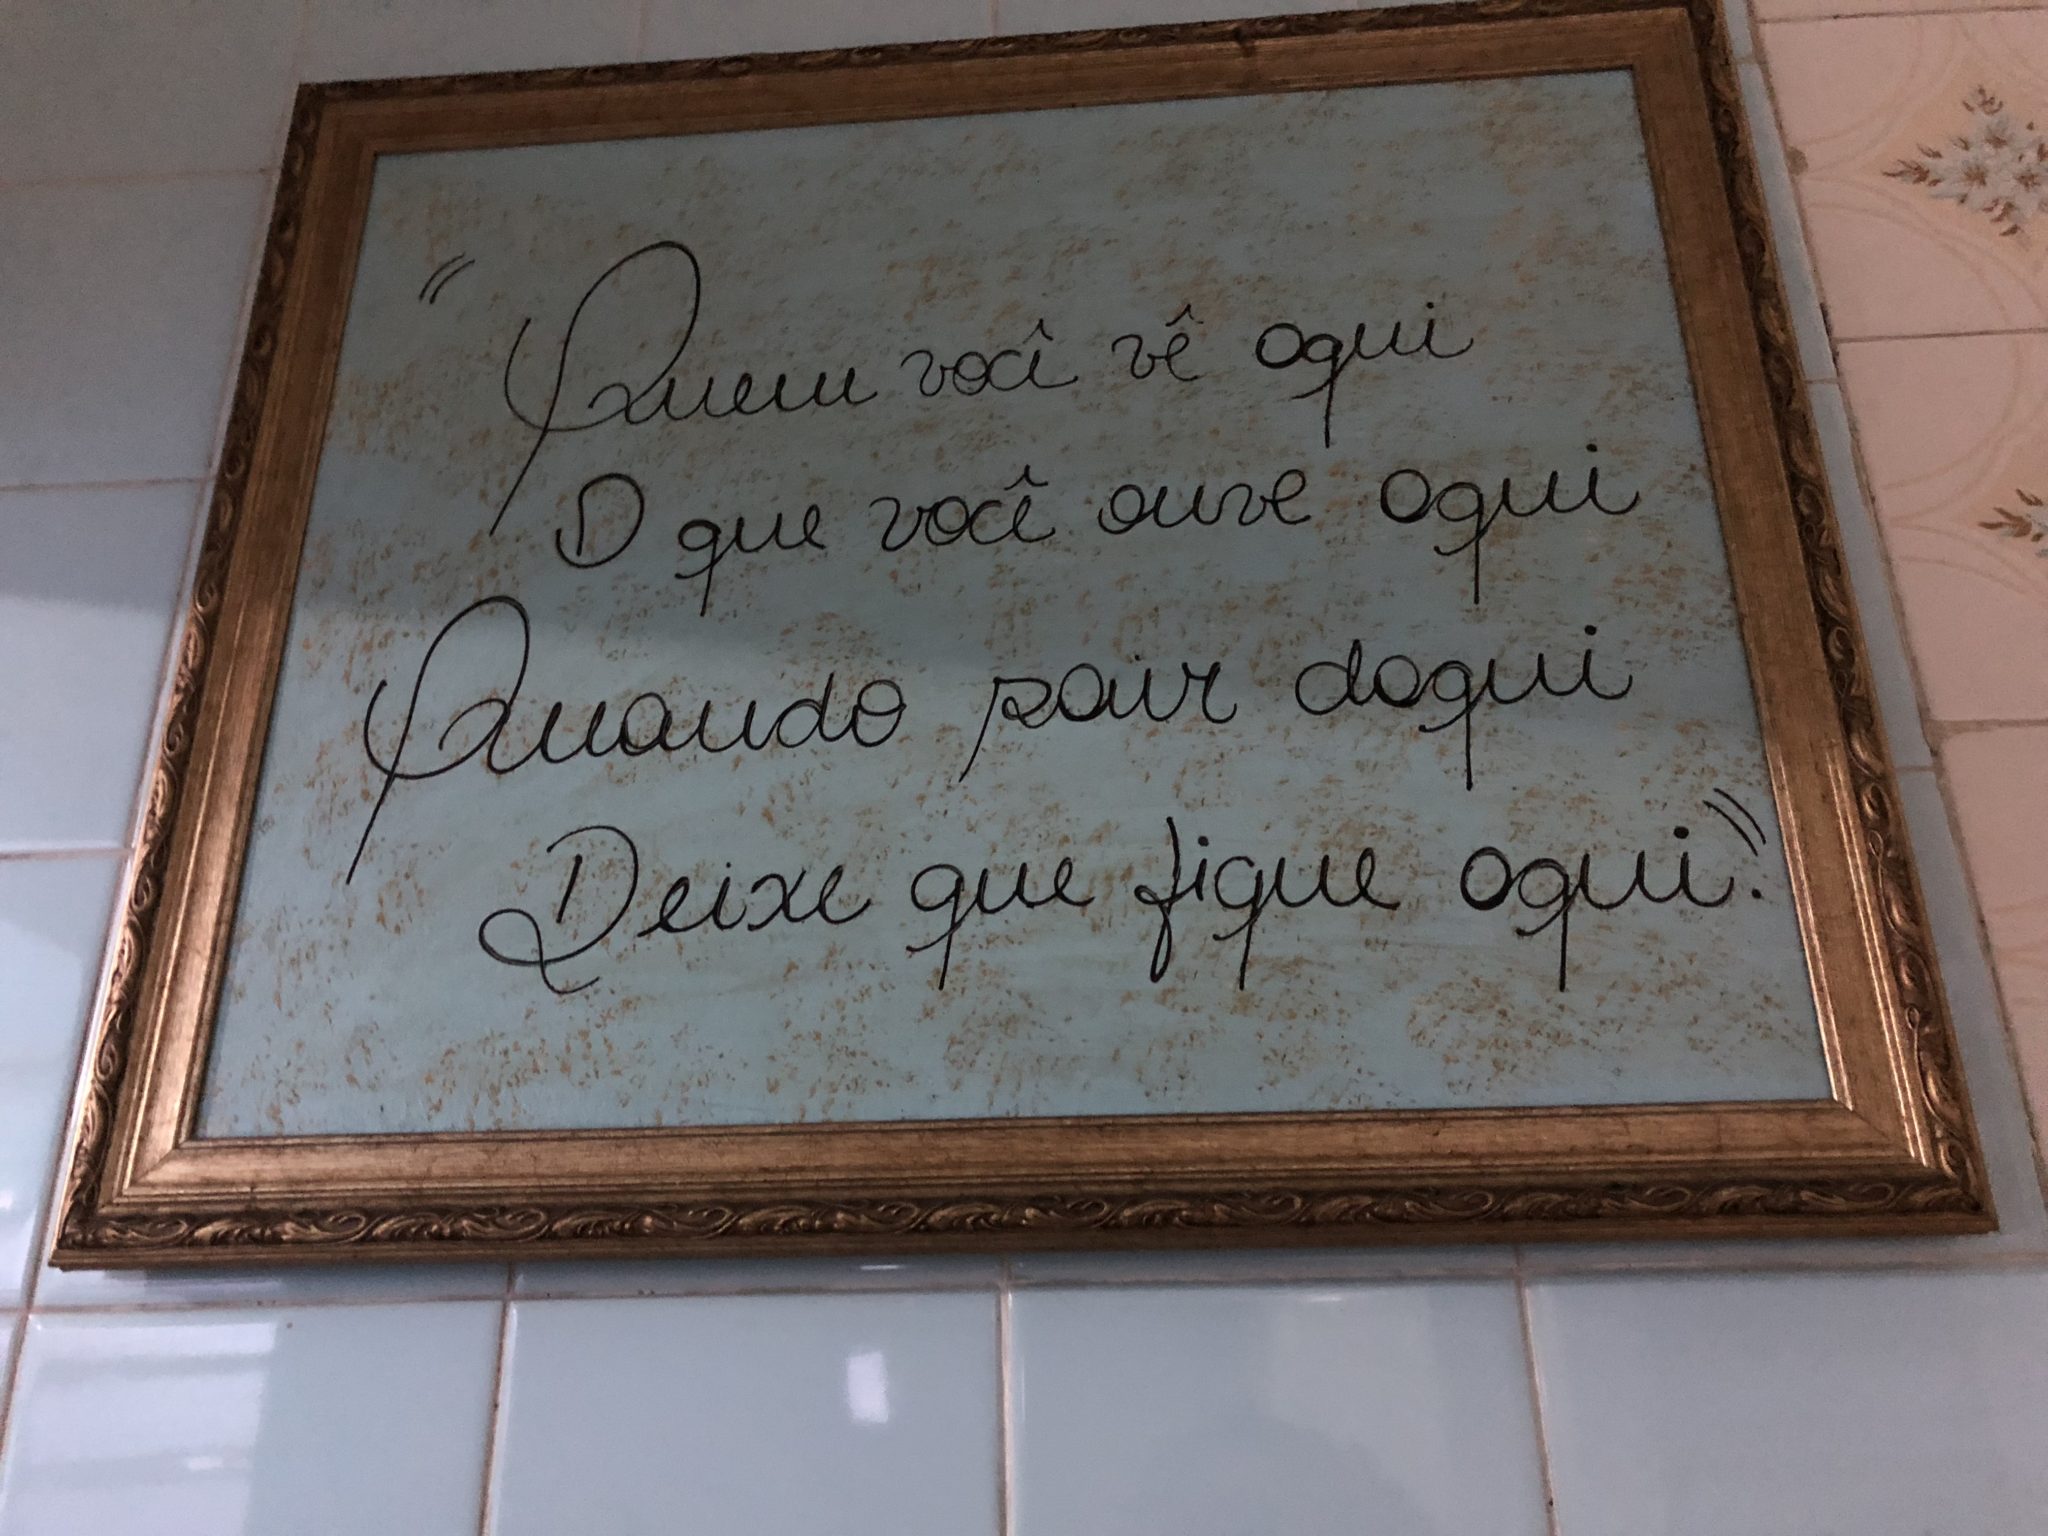 "Quem você vê aqui
O que você ouve aqui
Quando sair daqui
Deixe que fique aqui."